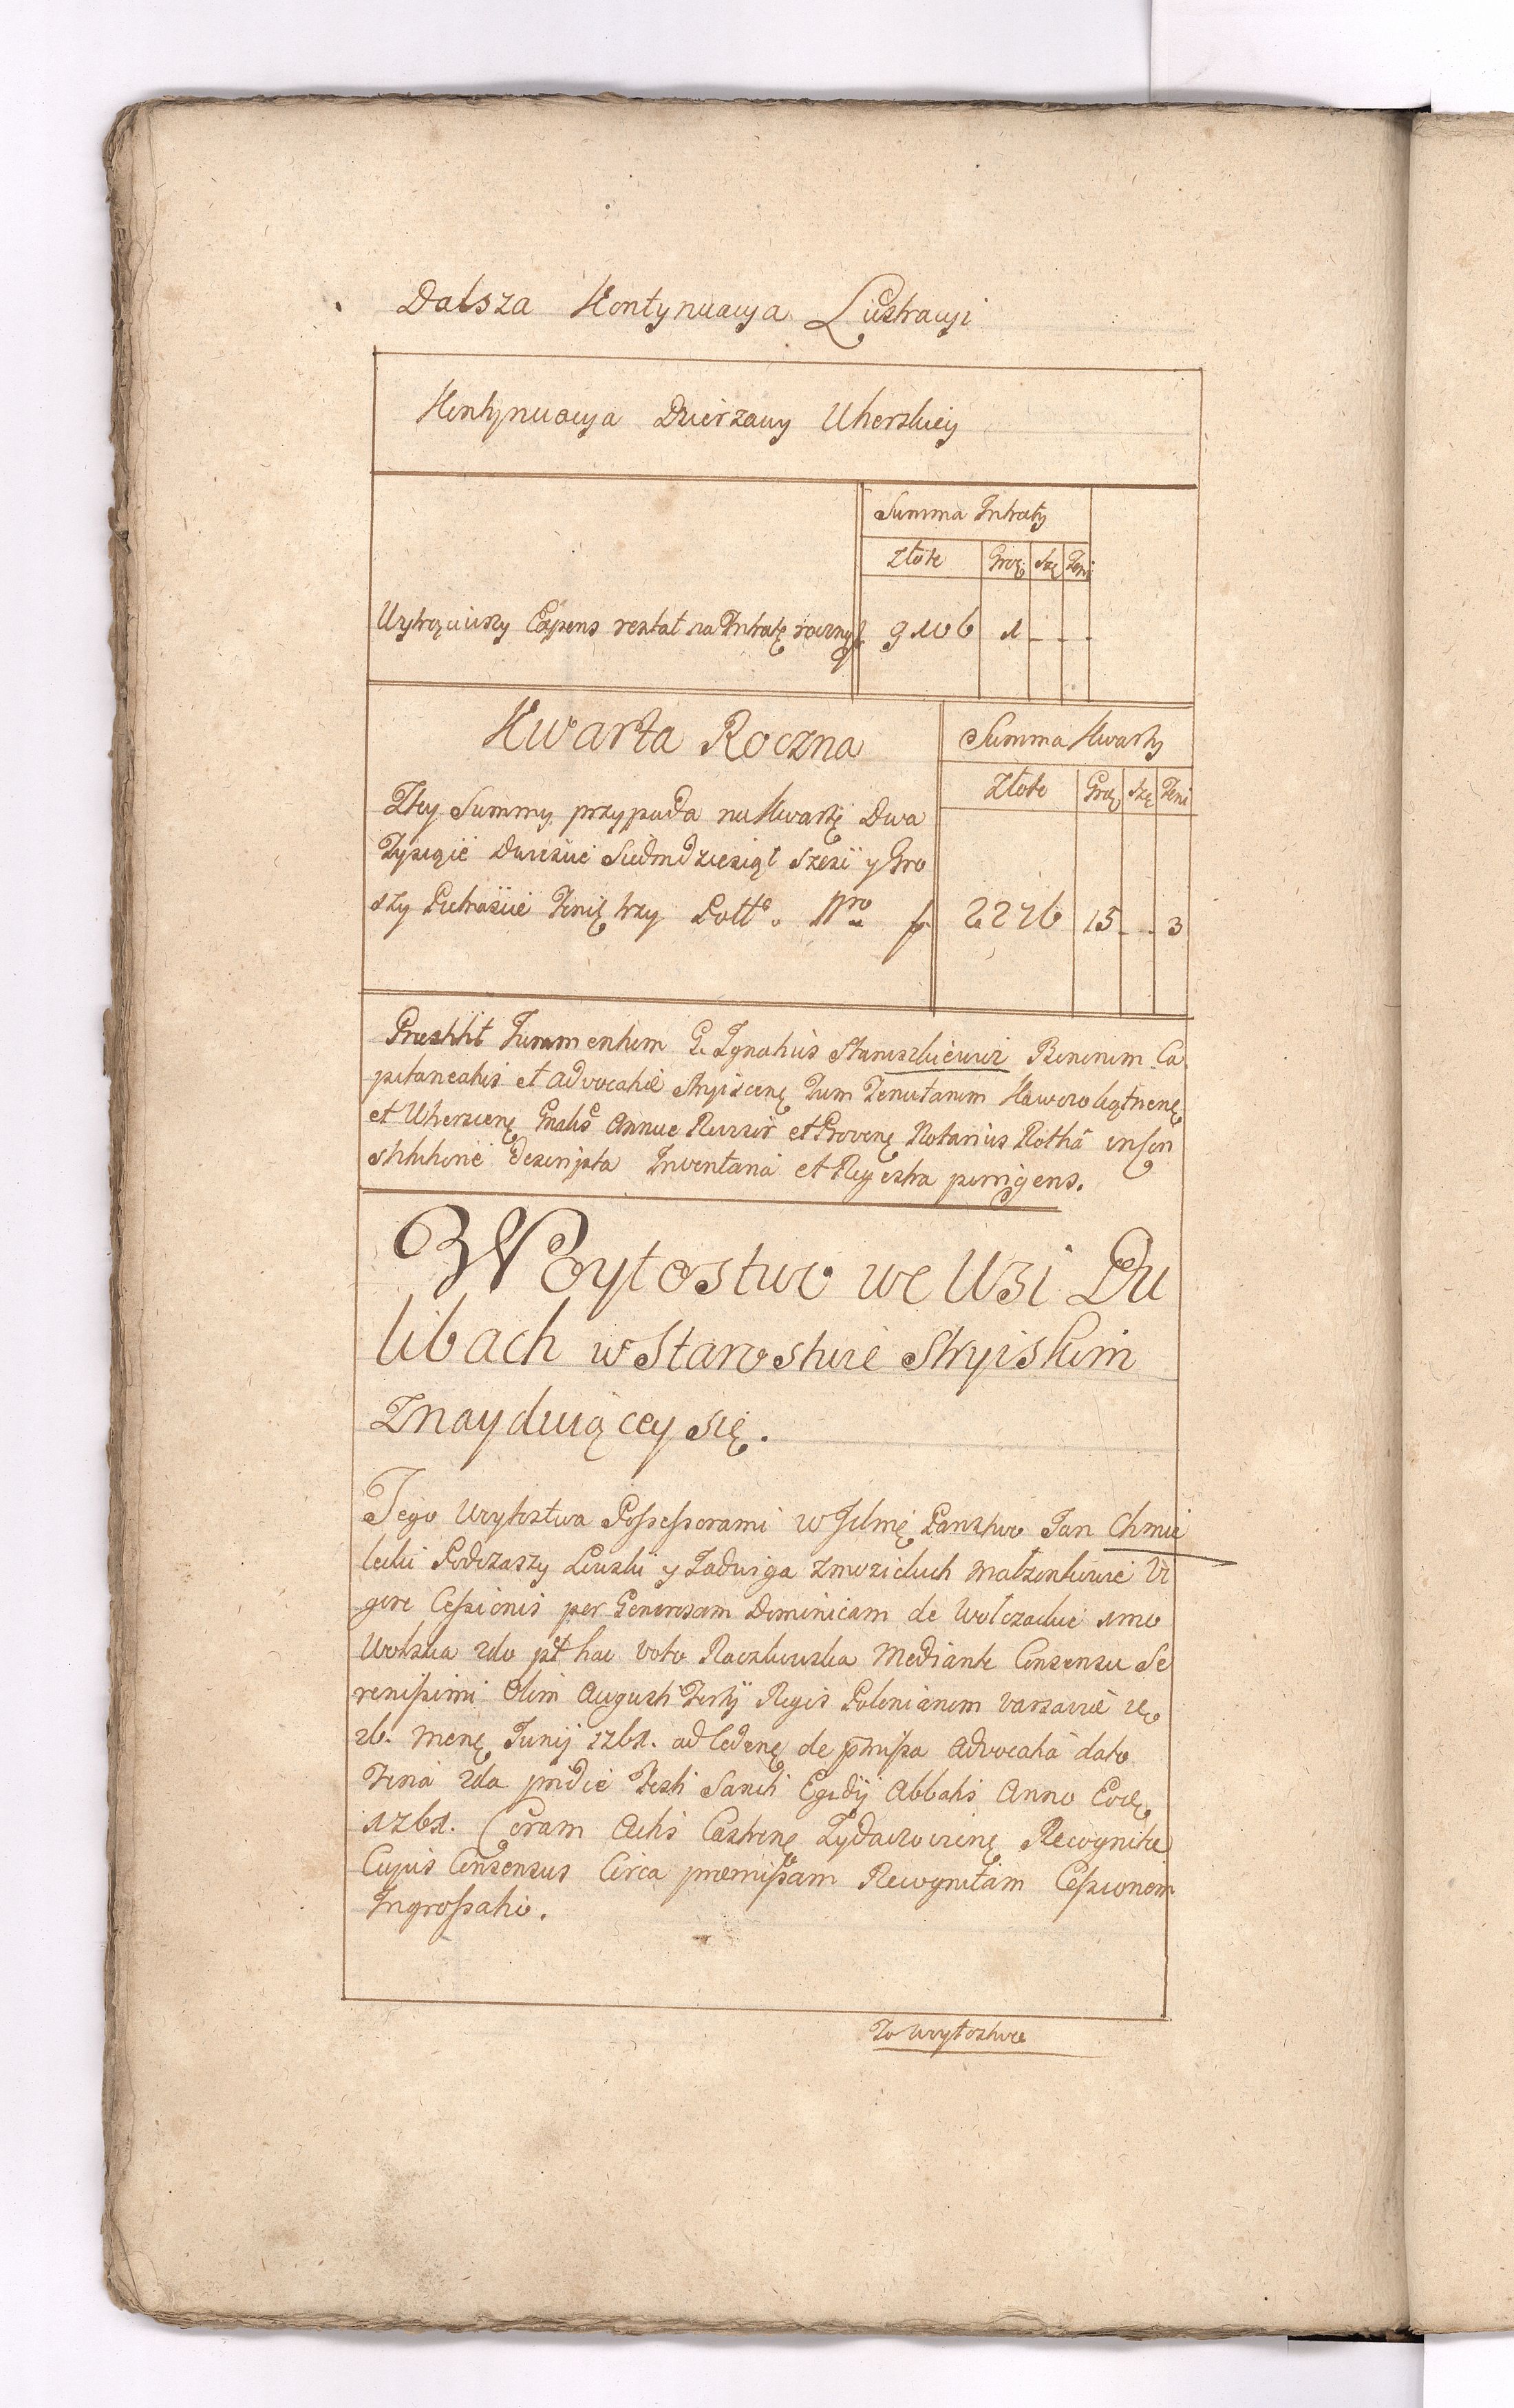 Dalsza Kontynuacya Lustracyi
Kontynuacya Dzierzawy Uherskiey
Summa Intraty
Złote Grosz Szę Feni
Wytrąciwszy Expens restat na Intratę roczną f 9106 1 - - -
Kwarta Roczna
Summa Kwarty
Złote Grosz Szę Feni
Ztey Summy przypada na Kwartę Dwa
Tysiące Dwieście Siedmdziesiąt Szesć y Gro
szy Piętnaście Fenię trzy Pol f 2276 15 - - 3
Præstitit Juramentum G. Ignatius Staniszkiewicz Ca
pitaneatus et advocatiæ Stryiscen Tum Tenutarum
et Uherscen Annuæ et Proven Notarius Rothā
descripta Inventaria et Regestra porrigens.
Woytostwo we Wsi Du
libach w Starostwie Stryiskim
Znayduiącey się.
Tego Woytostwa Possessorami W Jchmę Panstwo Jan Chmie
lecki Podczaszy y Jadwiga Małzonkowie Vi
gore Cessionis per Generosam Dominicam de 1mo
Wolska 2do pt hac voto Raczkowska Mediante Consensu Se
renissimi Olim Augusti Tertij Regis Poloniarum Varsaviæ
26. Menę Junij 1761. ad Cedenę de pmissa Advocatia dato
Feria 2da pridie Festi Sancti Egidij Abbatis Anno Eodę
1761. Coram Actis Castrenę Zydaczovienę Recognitæ
Cujus Consensus Circa præmissam Recognitam Cessionem
Ingrossatio.
To Woytostwo